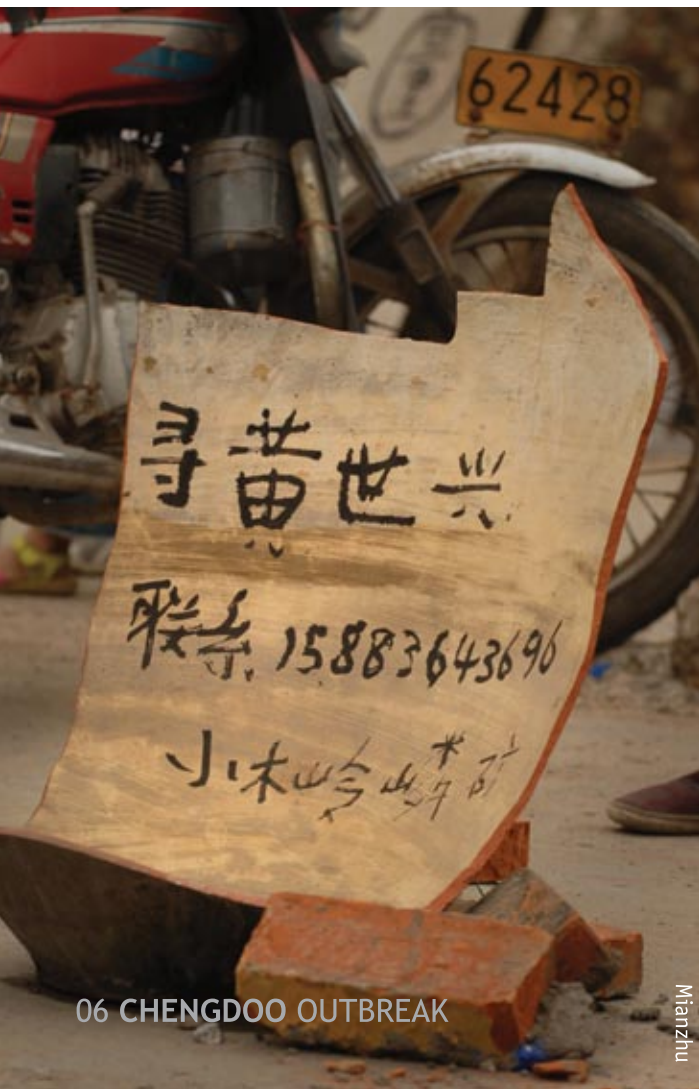 62428
寻黄世兴
联系 15883643696
小木岭
06 CHENGDOO OUTBREAK
Mianzhu